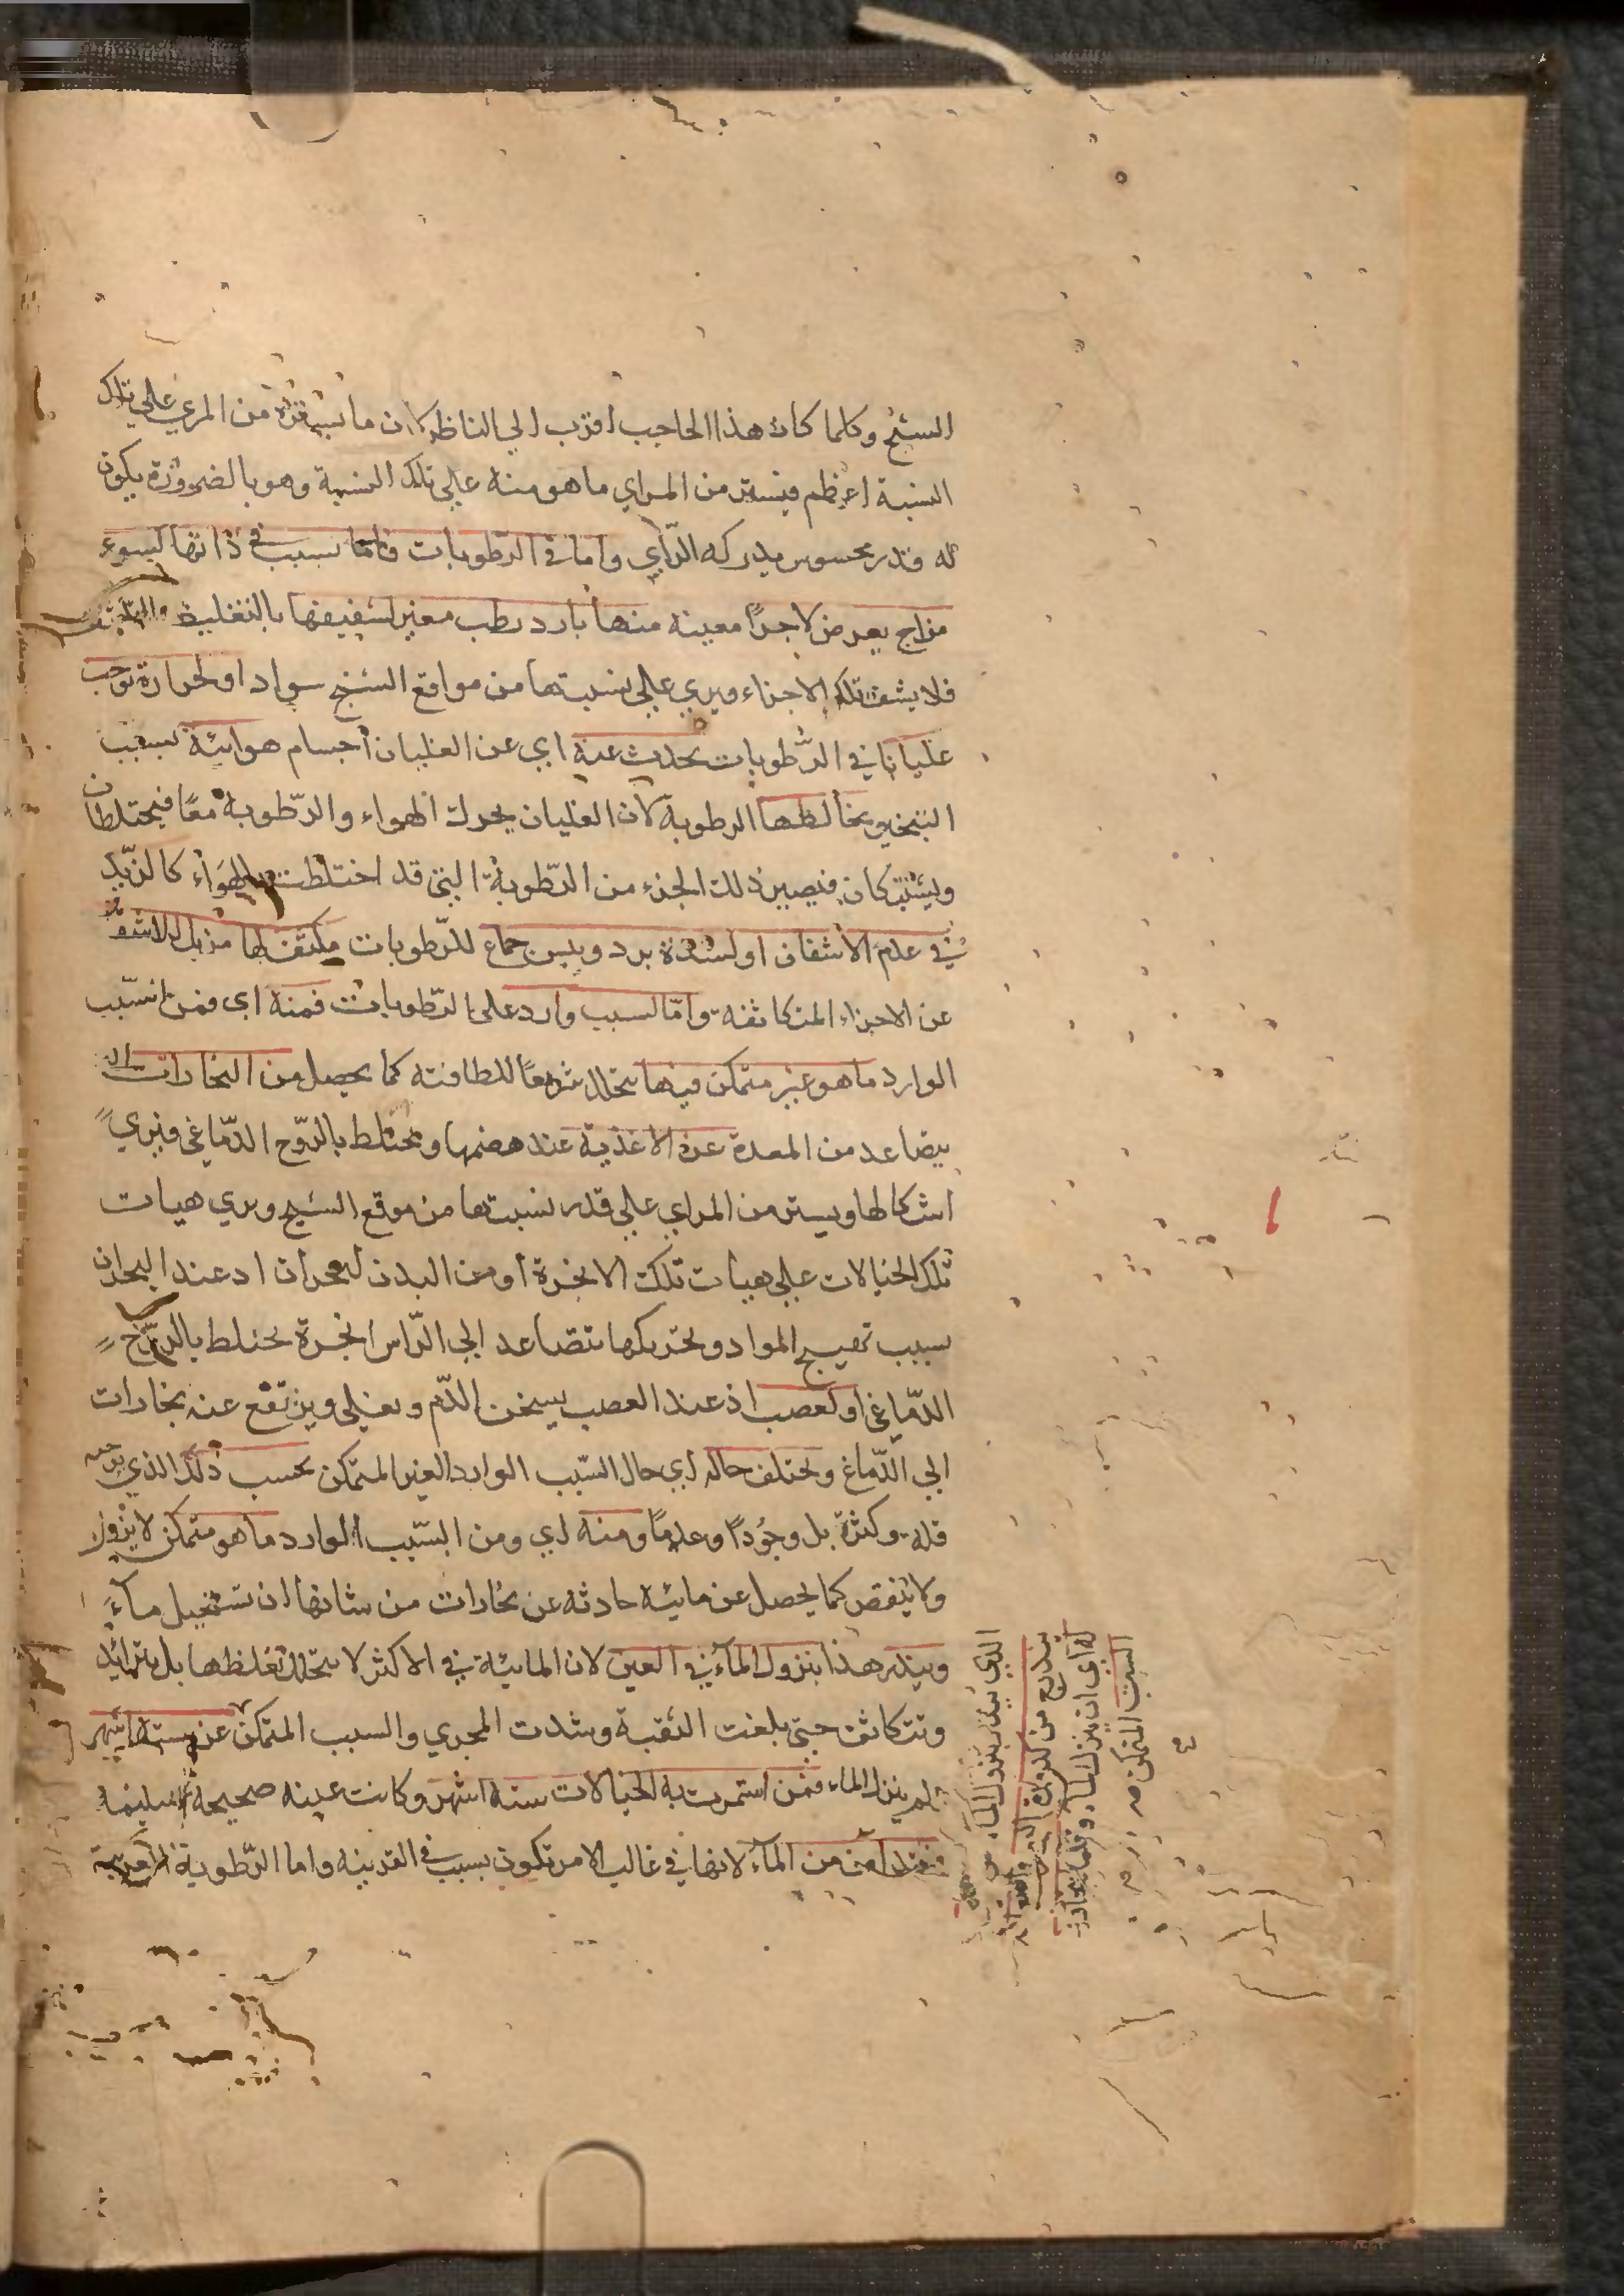 الشبح وكلما كان هذا الحاجب اقرب الي الناظر كان ما يستره من المري علي تلك
النسبة اعظم فيستر من المراي ما هو منه علي تلك النسبة وهو بالضرورة يكون
له قدر محسوس يدركه الرّأي واما في الرّطوبات فامّا لسبب في ذاتها كسوء
مزاج يعرض لاجزاً معينة منها بارد رطب مغير لشفيفها بالتغليظ
فلا يشف تلك الاجزاء ويري علي نسبتها من مواقع الشبح سواد او لحرارة توجب
غليانا في الرّطوبات يحدث عنه اي عن الغليان اجسام هوائية بسبب
التبخير ويخالطها الرطوبة لان الغليان يحرك الهواء والرّطوبة معًا فيختلطان
ويشتركان فيصير ذلك الجزء من الرّطوبة التي قد اختلطت بالهواء كالزّبد
في عدم الاشفاف او لشدة برد ويبس جماع للرّطوبات مكثف لها مزيل للاشفاف
عن الاجزاء المتكاثفة وامّا لسبب وارد علي الرّطوبات فمنه اي فمن السّبب
الوارد ما هو غير متمكن فيها يتحلل سريعًا للطافته كما يحصل من البخارات الـ
يتصاعد من المعدة عن الاغذية عند هضمها ويختلط بالرّوح الدّماغي فيري
اشكالها ويستر من المراي علي قدر نسبتها من موقع الشبح ويري هيات
تلك الخيالات علي هيات تلك الابخرة او من البدن لبحران اذ عند البحران
بسبب تهييج المواد وتحريكها يتصاعد الي الرّاس ابخرة تختلط بالرّوح
الدّماغي او لغضب اذ عند الغضب يسخن الدّم ويغلي ويرتفع عنه بخارات
الي الدّماغ ويختلف حاله اي حال السّبب الوارد الغير المتمكن بحسب ذلك الذي يوجبه
قلة وكثرة بل وجُودًا وعدمًا ومنه اي ومن السّبب الوارد ما هو متمكن لا يزول
ولا ينقص كما يحصل عن مائية حادثة عن بخارات من شانها ان تستحيل ماءً
وينذر هذا بنزول المآء في العين لان المائية في الاكثر لا يتحلل لغلظها بل يتزايد
وتتكاثف حتي بلغت الثقبة وسُدت المجري والسبب المتمكن عن ستة اشهر
لم ينزل الماء فمن استمرت به الخيالات ستة اشهر وكانت عينه صحيحة سليمة
فقد امن من المآء لانها في غالب الامر تكون بسبب في القرنية واما الرّطوبة
الذي ينذر بنزول الماء
السبب المتمكن